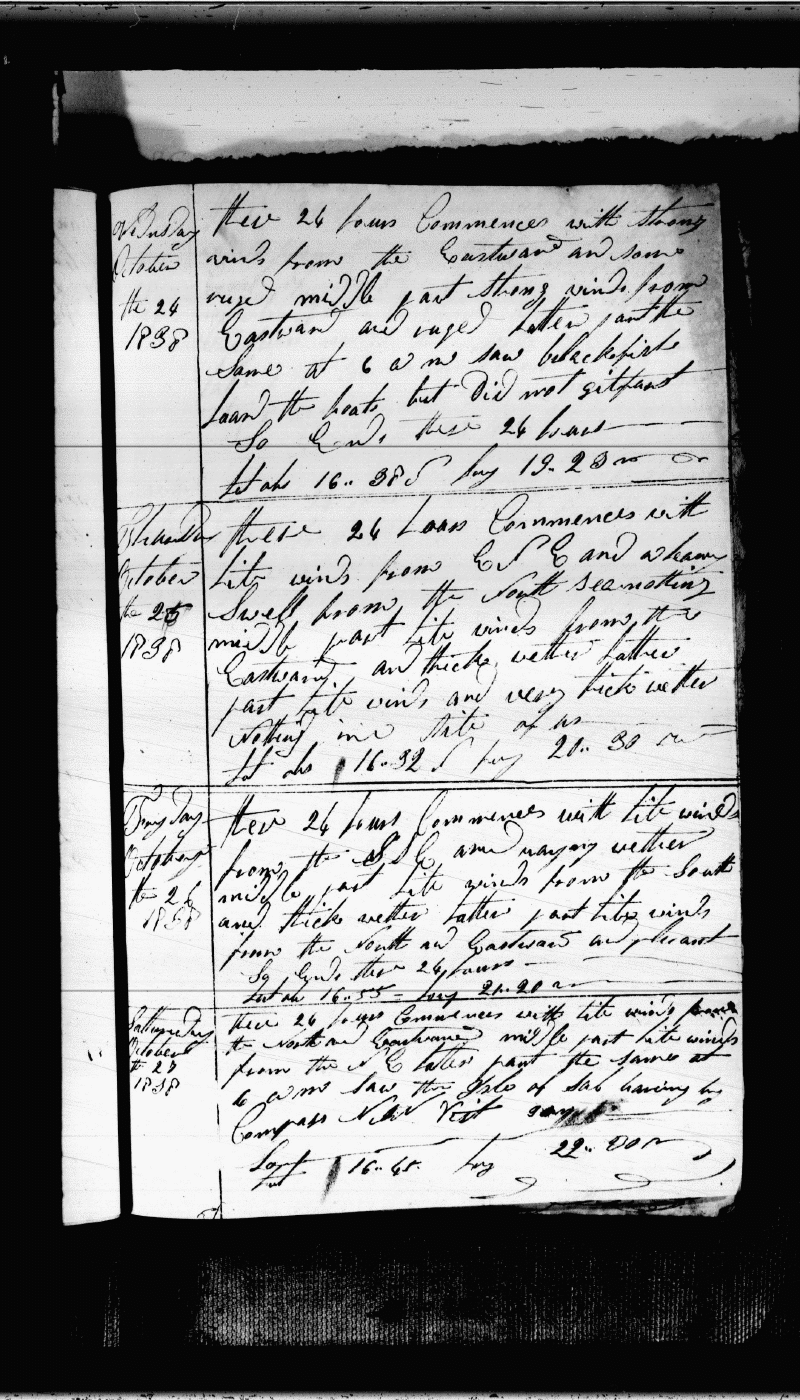 Wednsday
October
the 24
1838
these 24 hours Commences with strong
winds from the Eastward and some
ruged middle part strong winds from
Eastward and ruged latter part the
Same at 6 a m saw blackfish
loard the boats but Did not git fast
So Ends these 24 hours
Lat obs 16.. 38 S long 19.. 23
October
the 25
1838
these 24 hours Commences with
Lite winds from E S E and a heavy
Swell from the South sea nothing
middle part lite winds from the
Eastward and thick wether latter
part lite winds and very thick wether
Nothing in site of us
Lat obs 16..32 S long 20.. 30
Fryday
October
the 26
1838
these 24 hours Commences with lite winds
from the S S E and rayny wether
middle part Lite winds from the South
and thick wether latter part lite winds
from the South and Eastward and plesant
So Ends these 24 hours
Lat ob 16..55 long 21..20
Satturday
October
the 27
1838
these 24 hours Commences with lite winds from
the North and Eastward middle part lite winds
from the N E later part the same at
6 a m saw the Isle of Sal baring by
Compass N W
Lat 16..45 long 22..00